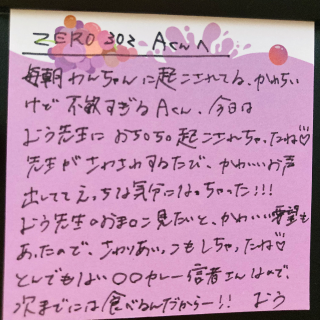 ZERO 302 Aくんへ
毎朝わんちゃんに起こされてる、かわいい
けど不敏すぎるAくん、今日は
よう先生におちおち起こされちゃったね♡
先生がさわさわするたび、かわいいお声
出しててえっちな気分になっちゃった!!!
よう先生のおま〇こ見たいと、かわいい要望も
あったので、さわりあいっこもしちゃったね♡
とんでもない〇〇カレー信者さんなので、
次までには食べるんだからー!! よう